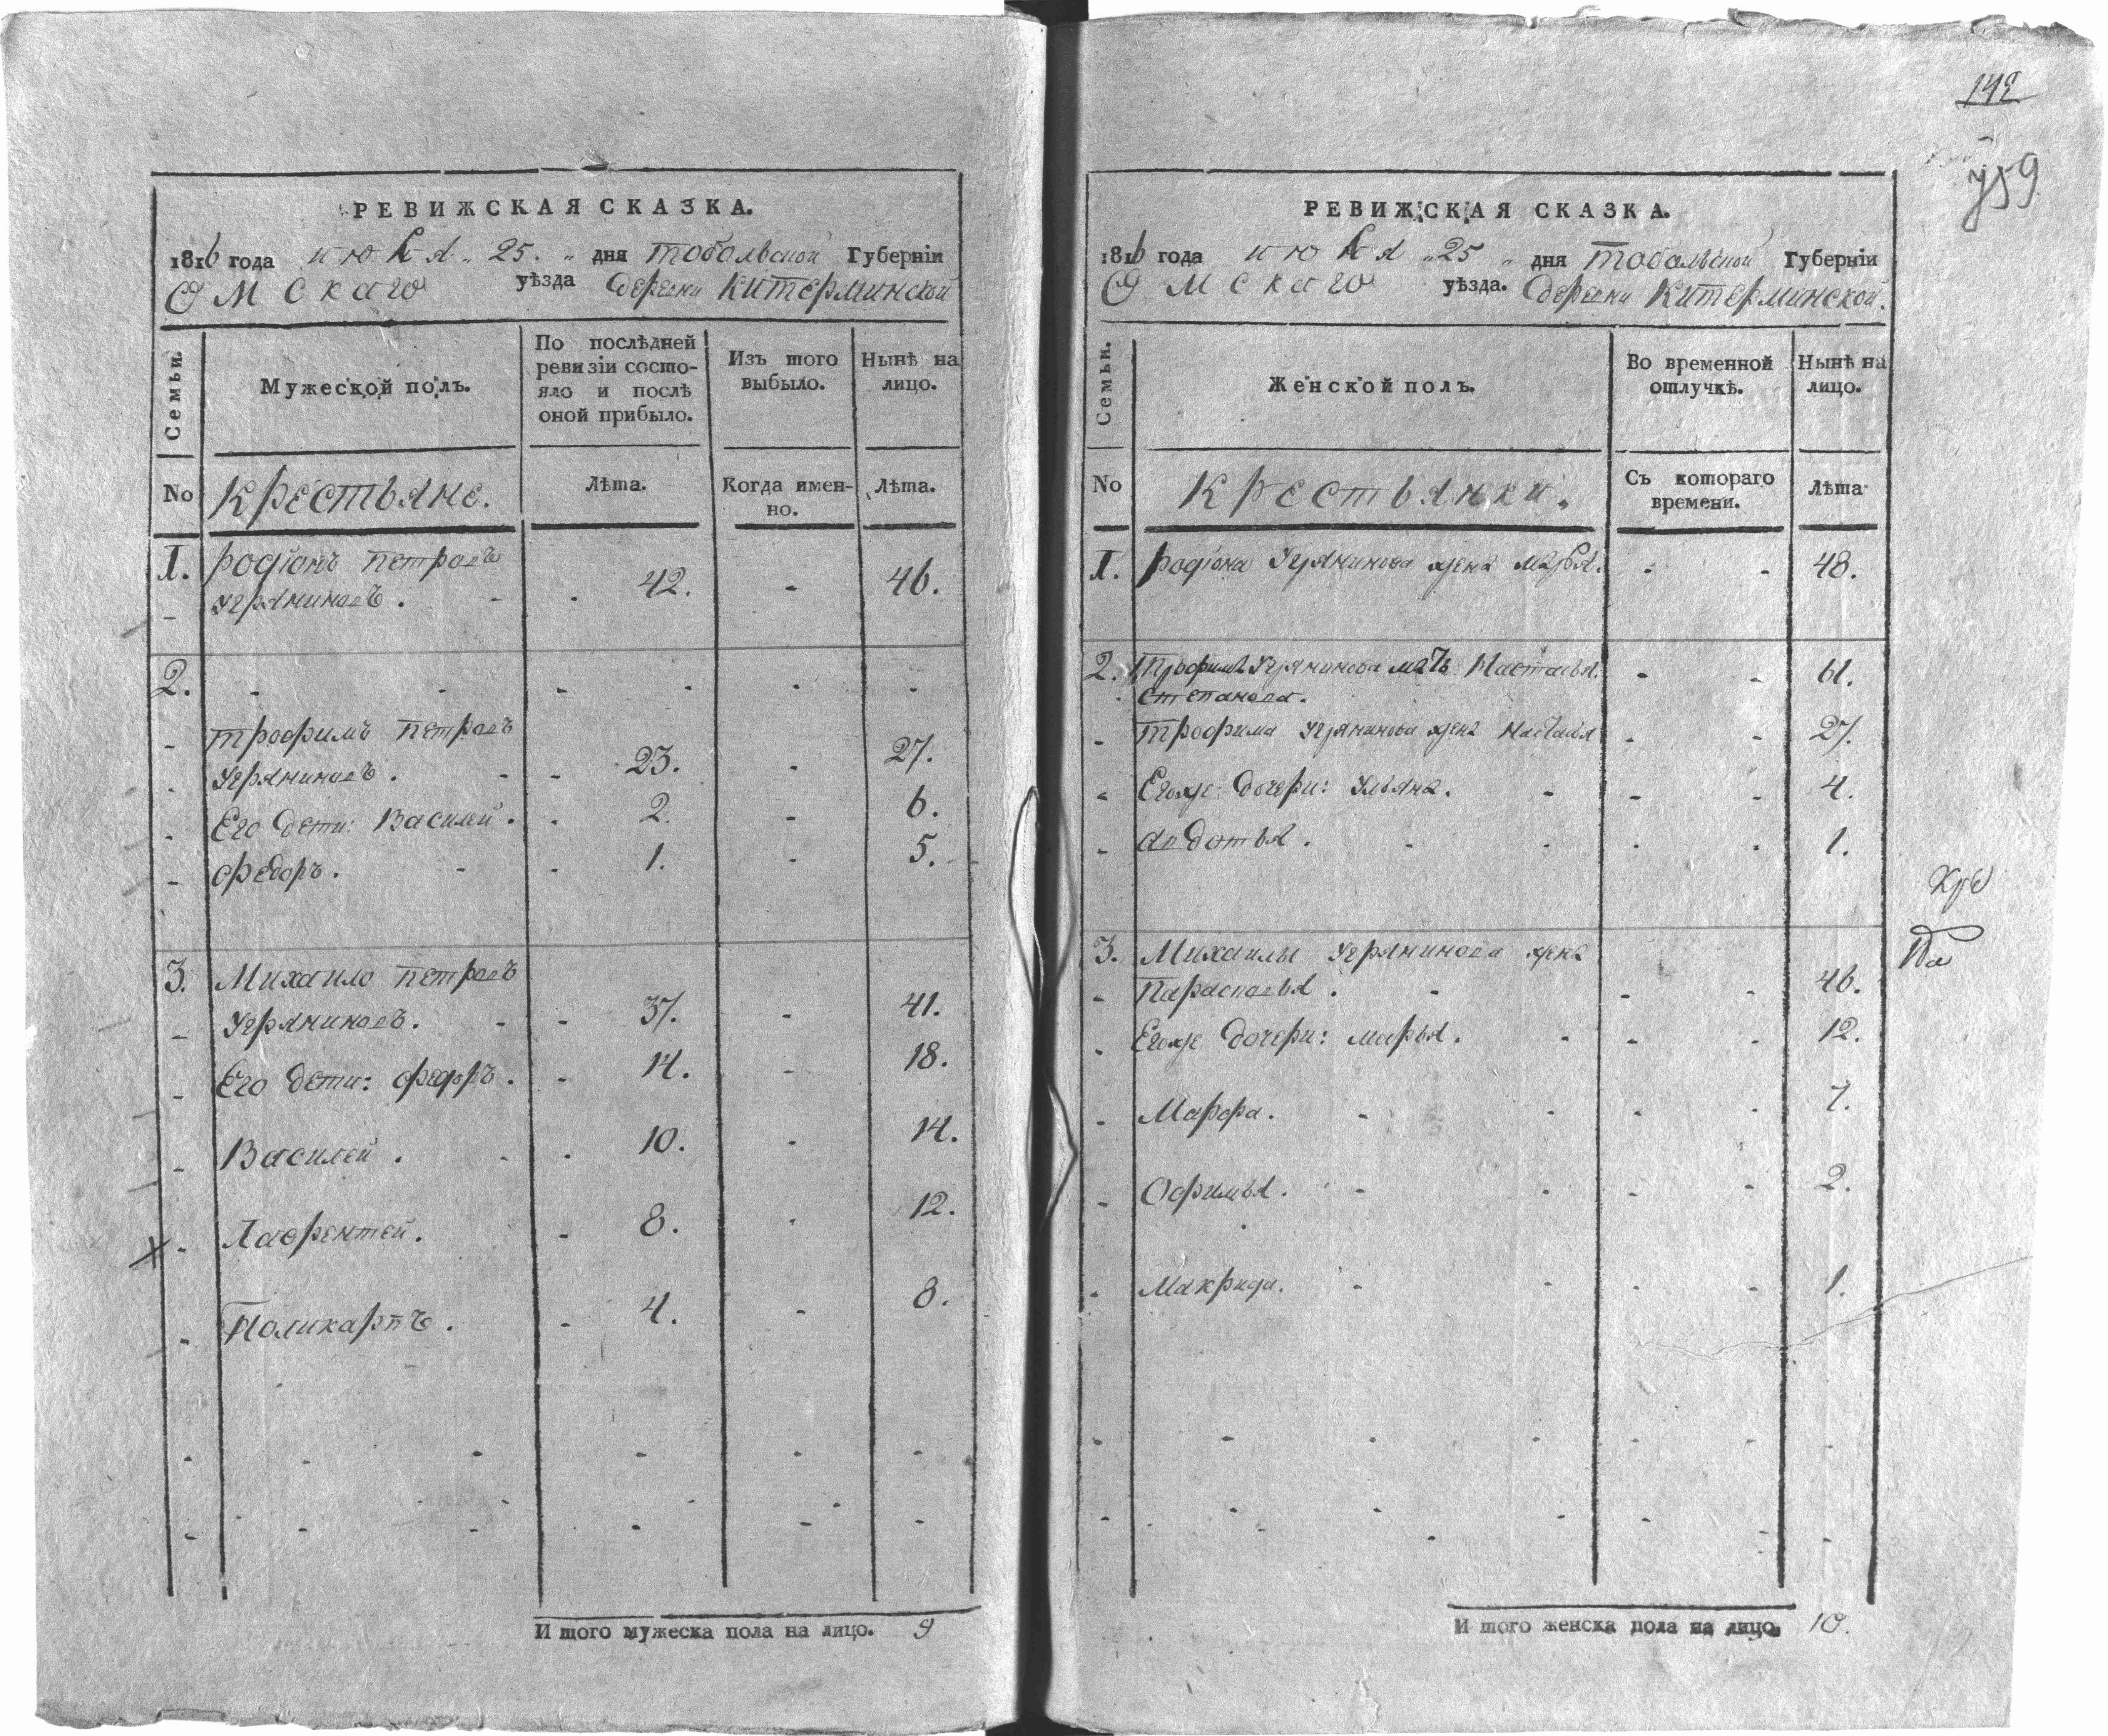 РЕВИЖСКАЯ СКАЗКА.
1816 года июля „ 25. „ дня тобольской Губерніи
Омскаго уѣзда деревни Китерминской
Семьи.
Мужеской полъ.
По послѣдней
ревизіи состо-
яло и послѣ
оной прибыло.
Изъ того
выбыло.
Нынѣ на
лицо.
No
Крестьяне.
Лѣта.
Когда имен-
но.
Лѣта.
1. родіонъ петровъ
угрѧниновъ. 42. 46.
2.
трофимъ петровъ
угрѧниновъ. 23. 27.
Его дети: Василей. 2. 6.
федоръ. 1. 5.
3. Михаило петровъ
угрѧниновъ. 37. 41.
Его дети: федоръ. 14. 18.
Василей. 10. 14.
Лаврентей. 8. 12.
Поликарпъ. 4. 8.
И того мужеска пола на лицо. 9
142
РЕВИЖСКАЯ СКАЗКА.
1816 года июля „ 25 „ дня тобольской Губерніи
Омскаго уѣзда. деревни Китерминской.
Семьи.
Женской полъ.
Во временной
отлучкѣ.
Нынѣ на
лицо.
No
Крестьянки.
Съ котораго
времени.
Лѣта
1. родіона угрѧнинова жена марья. 48.
2. трофима угрѧнинова мать Настасья. 61.
степанова.
трофима угрѧнинова жена настасья 27.
Егоже дочери: ульяна. 4.
авдотья. 1.
3. Михаилы угрѧнинова жена
Парасковья. 46.
Егоже дочери: марья. 12.
Марфа. 7.
Офимья. 2.
Макрида. 1.
И того женска пола на лицо. 10.